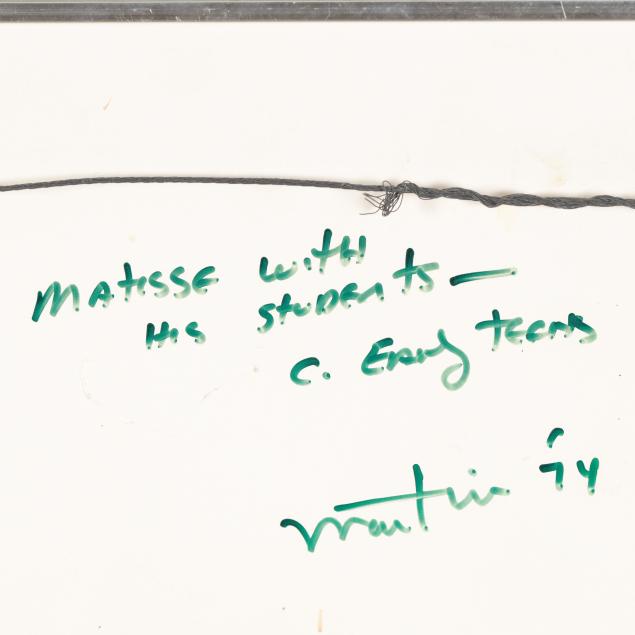 MATISSE WITH
HIS STUDENTS —
C. EARLY TEENS
Martin '74